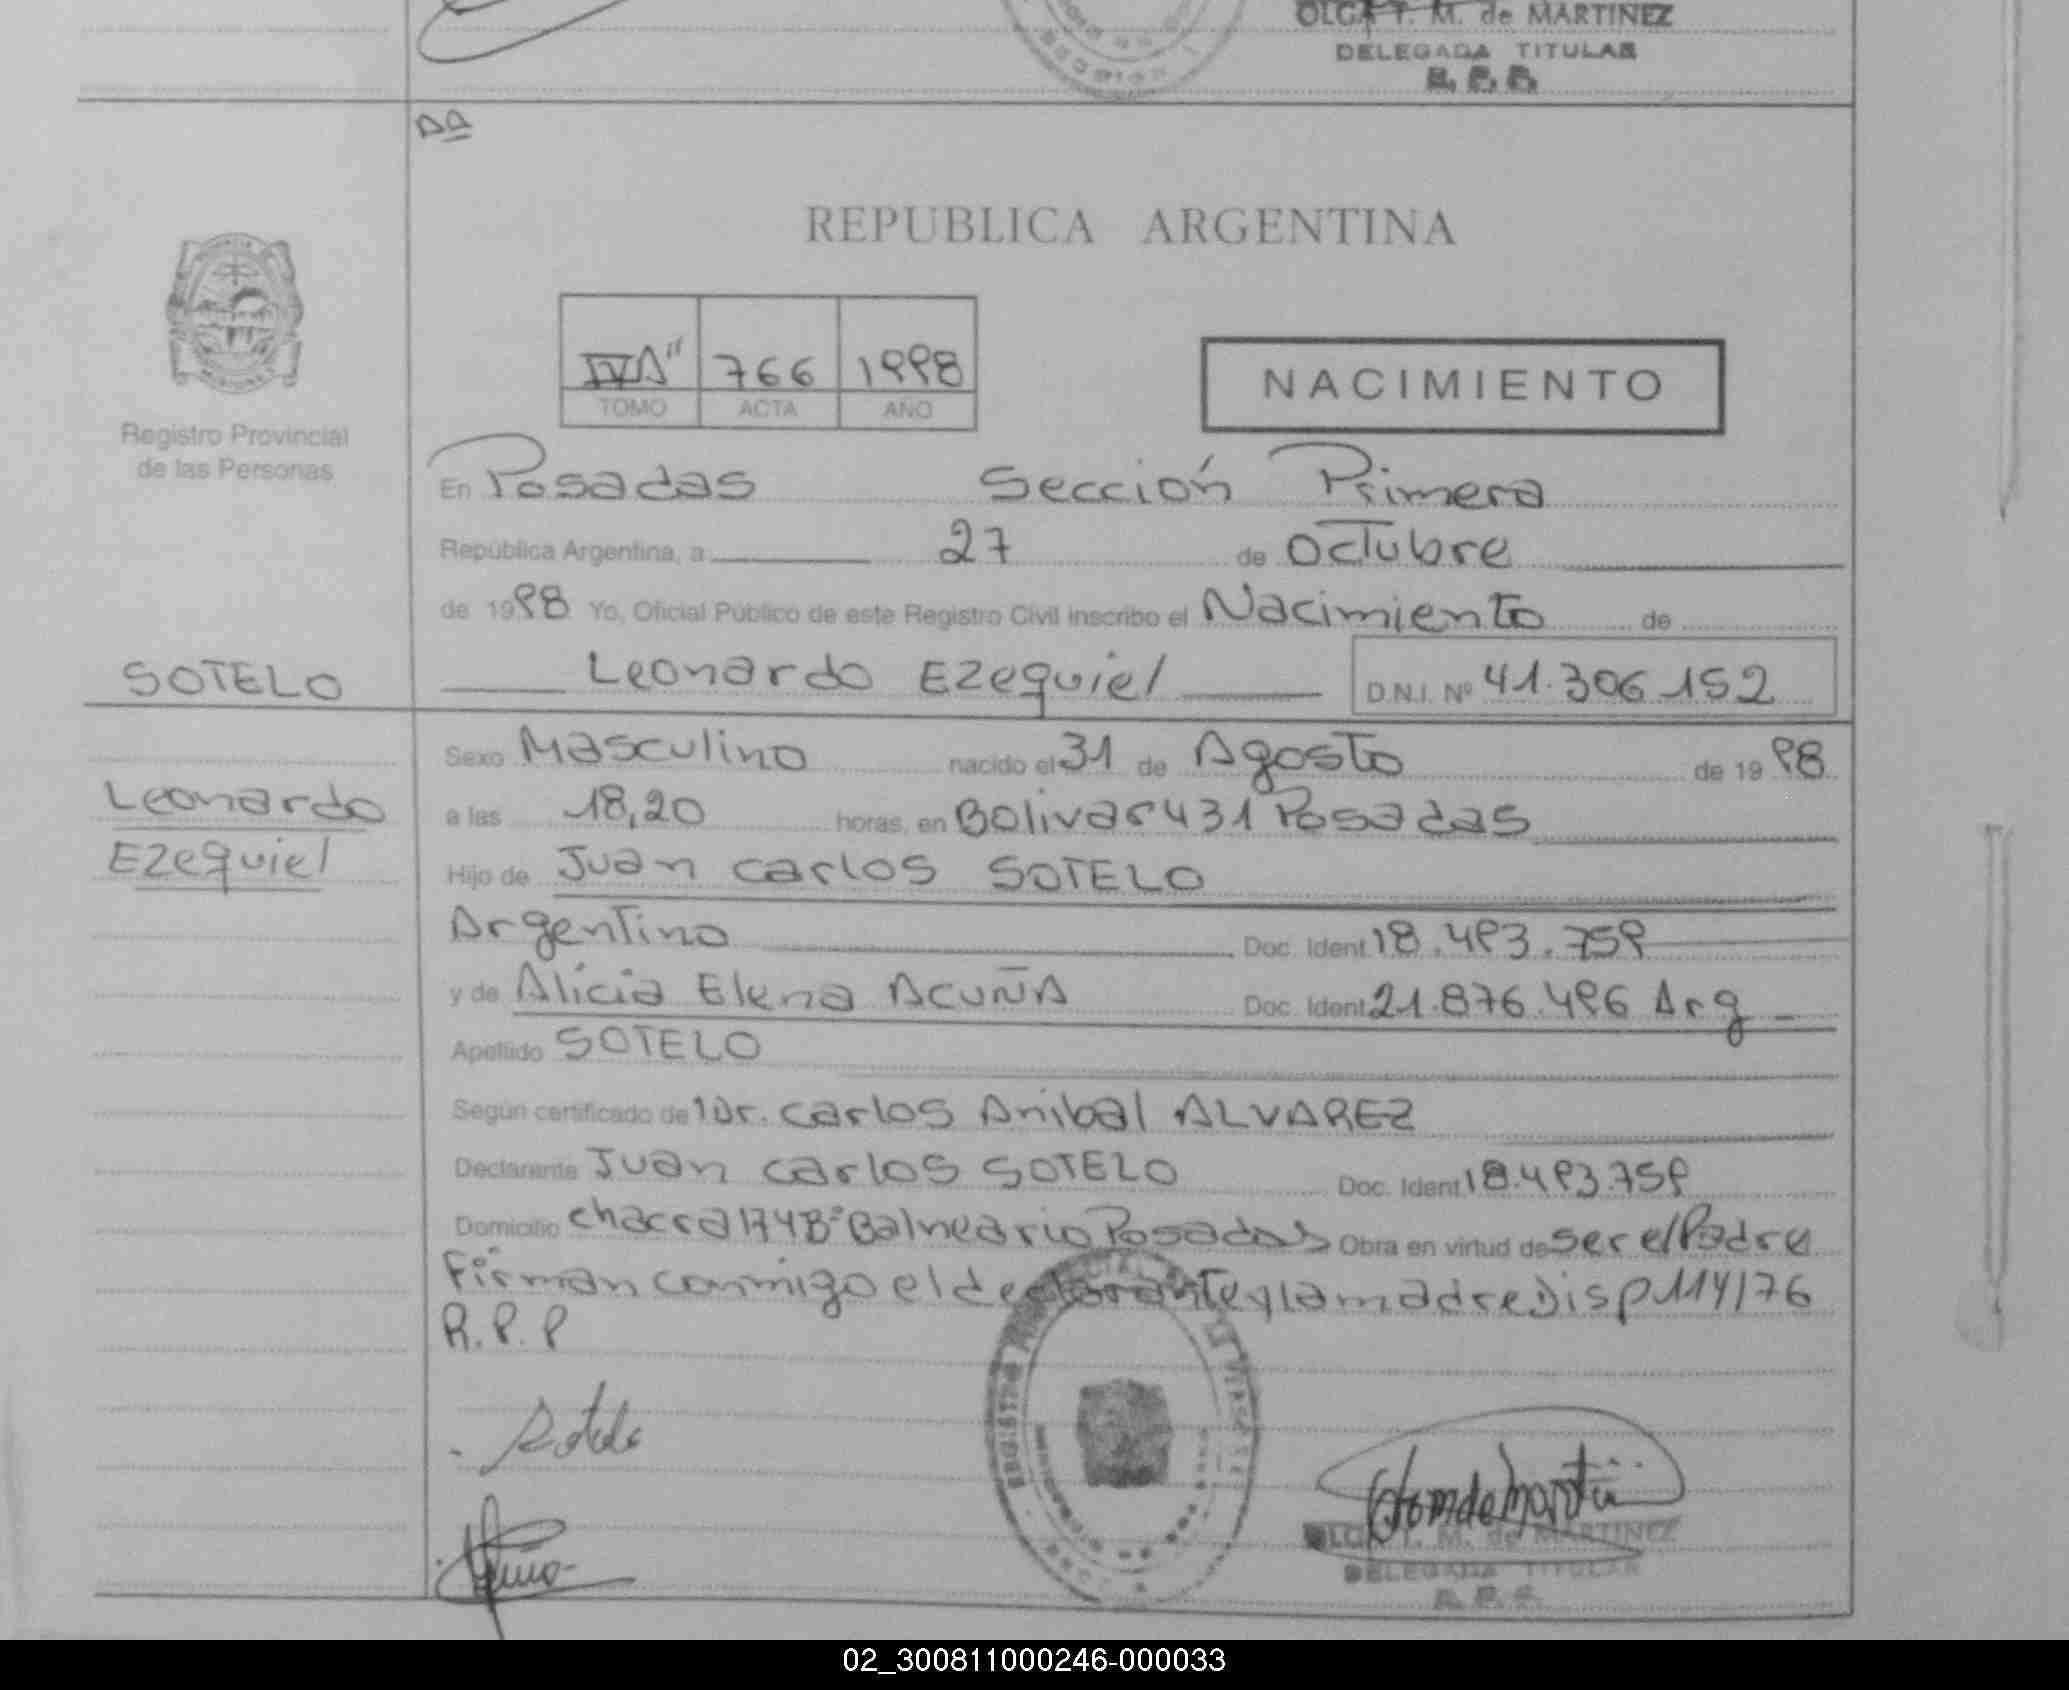 OLGA T. M. de MARTINEZ
DELEGADA TITULAR
R. P. P.
REPUBLICA ARGENTINA
IV A" 766 1998
TOMO ACTA AÑO
NACIMIENTO
Registro Provincial
de las Personas
En Posadas Sección Primera
República Argentina, a 27 de Octubre
de 1998 Yo, Oficial Público de este Registro Civil inscribo el Nacimiento de
SOTELO
Leonardo Ezequiel D.N.I. Nº 41.306.152
Leonardo
Ezequiel
Sexo Masculino nacido el 31 de Agosto de 1998
a las 18,20 horas, en Bolivar 431 Posadas
Hijo de Juan Carlos SOTELO
Argentino Doc. Ident. 18.493.759
y de Alicia Elena ACUÑA Doc. Ident. 21.876.496 Arg
Apellido SOTELO
Según certificado de 1 Dr. Carlos Anibal ALVAREZ
Declarante Juan Carlos SOTELO Doc. Ident. 18.493.759
Domicilio Chacra 174 Bº Balneario Posadas Obra en virtud de ser el Padre
Firman conmigo el declarante y la madre Disp 114/76
R.P.P
Sotelo
OLGA T. M. de MARTINEZ
DELEGADA TITULAR
R. P. P.
02_300811000246-000033